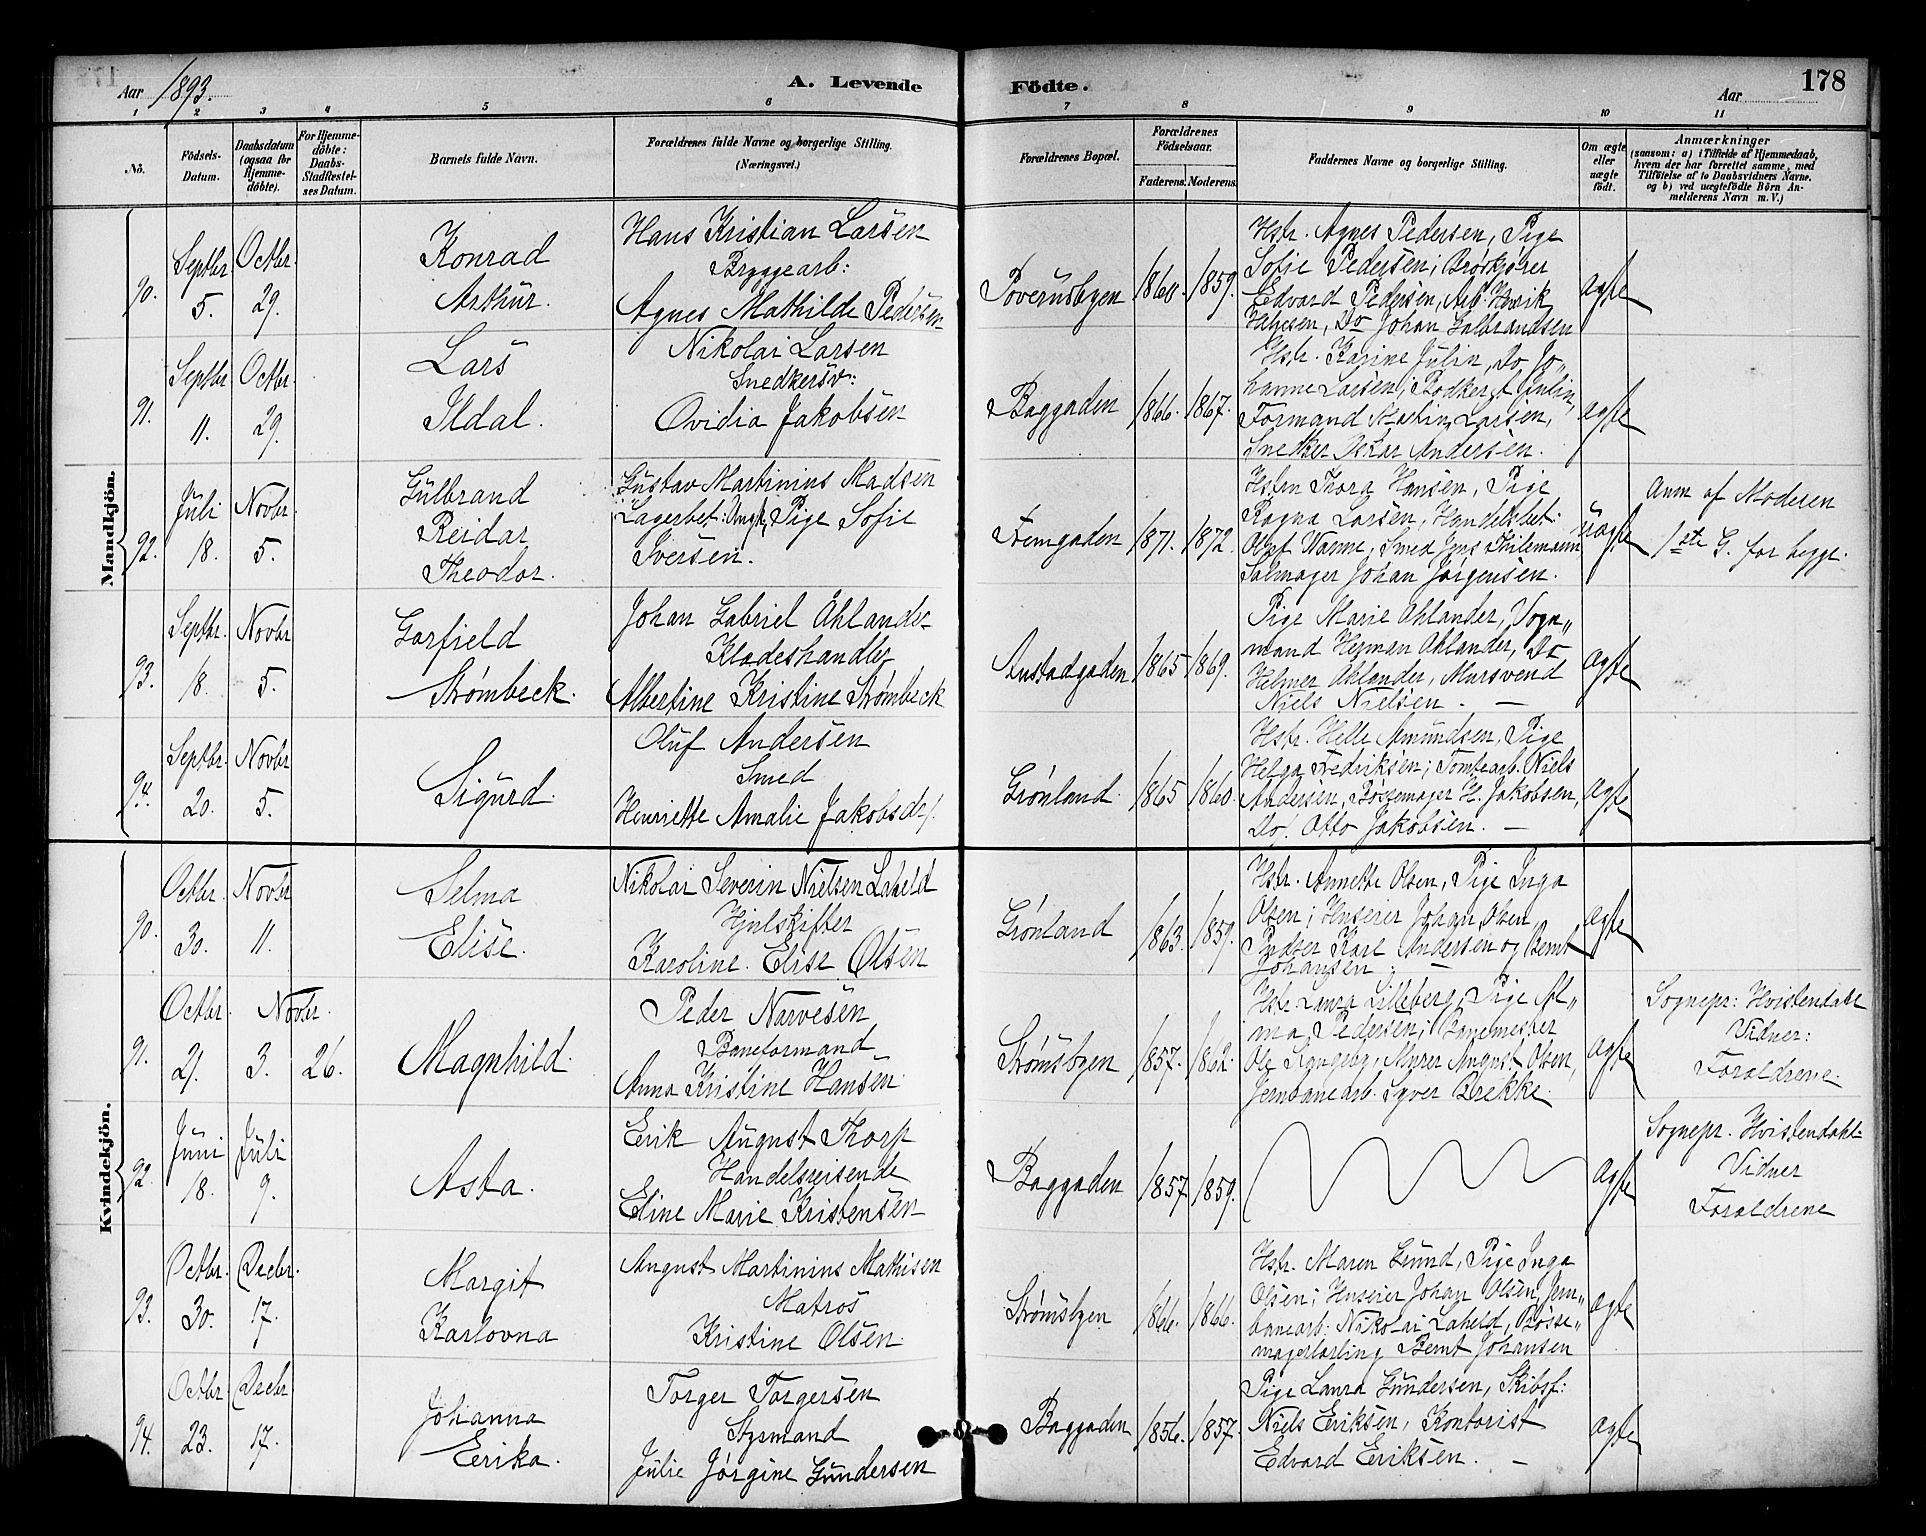 Aar 1893.
A. Levende Födte.
Aar
178
1 2 3 4 5 6 7 8 9 10 11
No.
Födsels-Datum.
Daabsdatum (ogsaa for Hjemmedöbte).
For Hjemmedöbte: Daabs-Stadfæstelses Datum.
Barnets fulde Navn.
Forældrenes fulde Navne og borgerlige Stilling.
(Næringsvei.)
Forældrenes Bopæl.
Forældrenes Födselsaar.
Faderens. Moderens.
Faddernes Navne og borgerlige Stilling.
Om ægte eller uægte födt.
Anmærkninger
(saasom: a) i Tilfælde af Hjemmedaab, hvem der har forrettet samme, med Tilföielse af to Daabsvidners Navne. og b) ved uægtefödte Börn Anmelderens Navn m. V.)
Mandkjön.
90.
Septbr 5.
Octbr. 29.
Konrad
Arthur.
Hans Kristian Larsen
Bryggearb:
Agnes Mathilde Pedersen
1860. 1859.
Hstr. Agnes Pedersen, Pige
Sofie Pedersen;
Edvard Pedersen, Arb. Henrik
Do Johan Gulbrandsen
ægte
91.
Septbr 11.
Octbr. 29.
Lars
Ildal.
Nikolai Larsen
Snedkersv:
Ovidia Jakobsen
Baggaden
1866. 1867.
Hstr. Karine Julin, Do Jo„
hanne Larsen; Julin,
Formand Martin Larsen,
Snedker Oskar Andersen.
ægte
92.
Juli 18.
Novbr. 5.
Gulbrand
Reidar
Theodor.
Gustav Martinius Madsen
Lagerbet: Ungk, Pige Sofie
Iversen.
Femgaden
1871. 1872.
Hstru Thora Hansen, Pige
Ragna Larsen, Handelsbet:
Olaf Wanne, Smed Jens Thilemann
Salmager Johan Jørgensen.
uægte
Anm af Moderen
1ste G. for begge.
93.
Septbr. 18.
Novbr 5.
Garfield
Strømbeck.
Johan Gabriel Åhlander
Klædeshandler
Albertine Kristine Strømbeck
Austadgaden
1865 1869.
Pige Marie Åhlander, Vogn„
mand Herman Åhlander, Do
Helmer Åhlander, Mursvend
Niels Nielsen. —
ægte
94.
Septbr. 20.
Novbr 5.
Sigurd
Oluf Andersen
Smed
Henriette Amalie Jakobsd/.
Grønland
1865 1860.
Hstr. Helle Amundsen, Pige
Helga Fredriksen; Tomtearb. Niels
Andersen, Bøssemager H. Jakobsen,
Do/. Otto Jakobsen. —
ægte
Kvindekjön.
90.
Octbr. 30.
Novbr 11.
Selma
Elise.
Nikolai Severin Nielsen Laheld
Hjulskifter
Karoline Elise Olsen
Grønland
1863. 1859.
Hstr. Annette Olsen, Pige Inga
Olsen; Huseier Johan Olsen,
Pudser Karl Andersen og Bernt
Johansen
ægte
91.
Octbr. 21.
Novbr. 3. 26.
Magnhild.
Peder Narvesen
Baneformand
Anna Kristine Hansen.
Strømsbyen
1857. 1862.
Hstr Laura Lilleberg, Pige Al„
ma Pedersen; Banemester
Murer August Olsen,
Jernbanearb. Syver Brekke.
ægte
Sognepr: Hvistendahl
Vidner:
Forældrene.
92.
Juni 18.
Juli 9.
Asta.
Erik August Thorp
Handelsreisende
Eline Marie Kristensen
Baggaden
1857 1859.
ægte
Sognepr. Hvistendahl.
Vidner
Forældrene
93.
Octbr. 30.
Decbr. 17.
Margit
Karlovna
August Martinius Mathisen
Matros
Kristine Olsen.
Strømsbyen
1866. 1866.
Hstr. Maren Lund, Pige Inga
Olsen; Huseier Johan Olsen, Jern„
banearb: Nikolai Laheld, Bøsse„
magerlærling Bernt Johansen
ægte
94.
Octbr. 23.
Decbr. 17.
Johanna
Erika.
Torger Torgersen
Styrmand
Julie Jørgine Gundersen
Baggaden
1856. 1857.
Pige Laura Gundersen, Skibsf:
Niels Eriksen, Kontorist
Edvard Eriksen. —
ægte